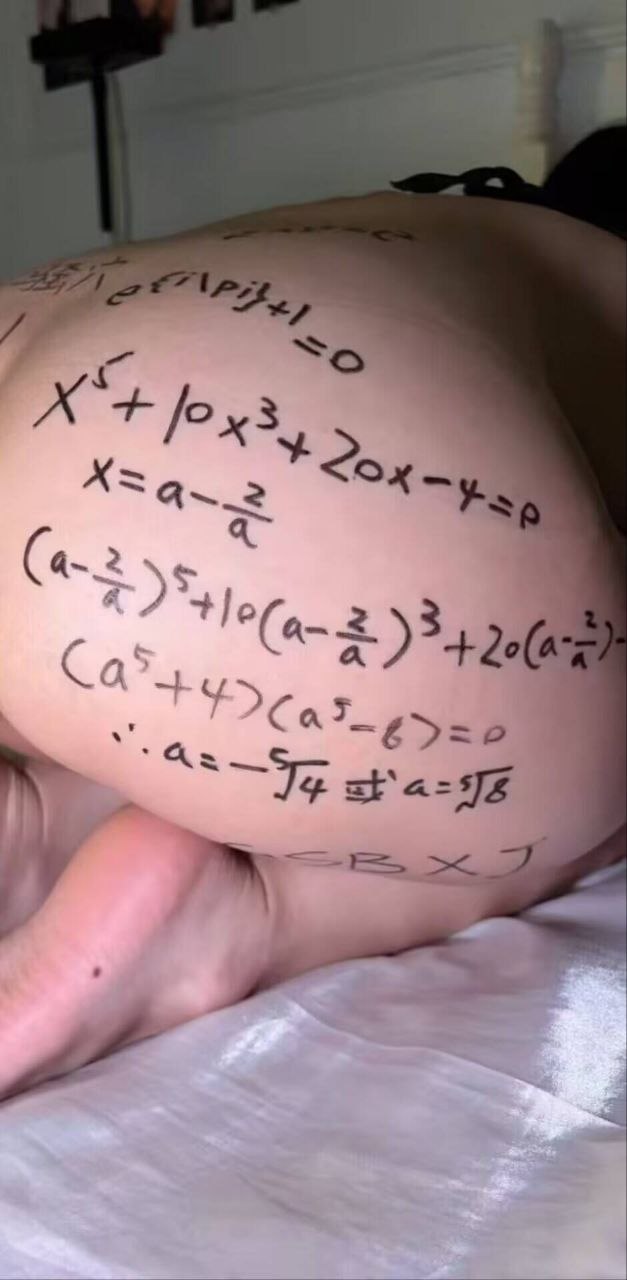 e^{i\pi}+1=0
x⁵+10x³+20x-4=0
x=a-2/a
(a-2/a)⁵+10(a-2/a)³+20(a-2/a)-
(a⁵+4)(a⁵-8)=0
∴a=-⁵√4 或 a=⁵√8
CBXJ